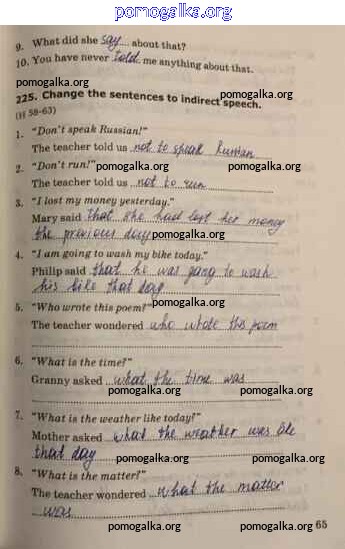 pomogalka.org
9. What did she say about that?
10. You have never told me anything about that.
pomogalka.org pomogalka.org
225. Change the sentences to indirect speech.
(§ 58-63)
pomogalka.org
1. "Don't speak Russian!"
The teacher told us not to speak Russian
2. "Don't run!" pomogalka.org pomogalka.org
The teacher told us not to run
3. "I lost my money yesterday."
Mary said that she had lost her money
the previous day pomogalka.org
4. "I am going to wash my bike today."
Philip said that he was going to wash
his bike that day
5. "Who wrote this poem?" pomogalka.org
The teacher wondered who wrote this poem
6. "What is the time?" pomogalka.org
Granny asked what the time was
pomogalka.org pomogalka.org
7. "What is the weather like today?"
Mother asked what the weather was like
that day pomogalka.org
8. "What is the matter?"
The teacher wondered what the matter
was
pomogalka.org pomogalka.org 65